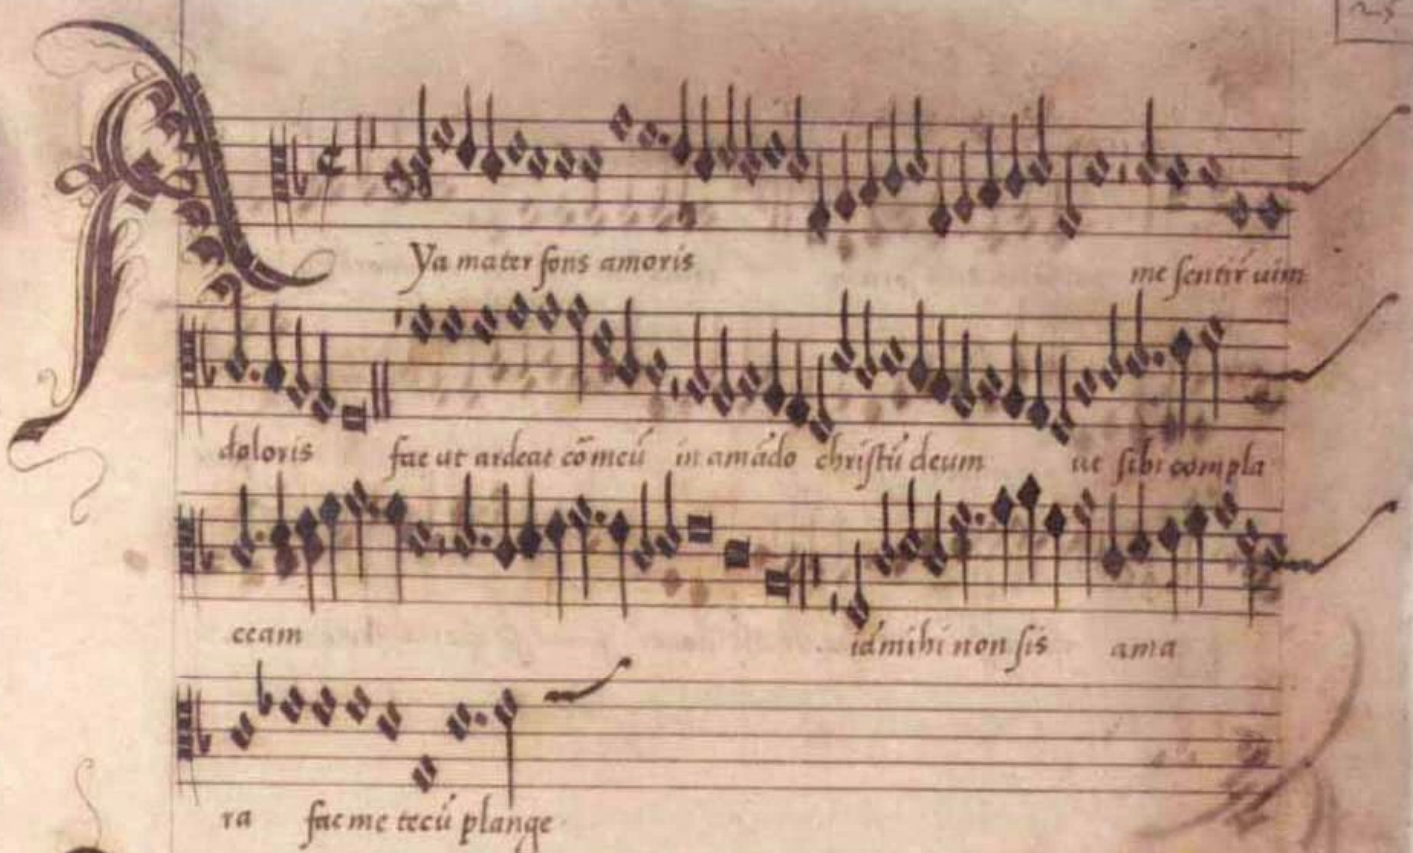 Ya mater fons amoris me sentir̃ uim
doloris fac ut ardeat cõ meũ in amãdo christũ deum ut sibi compla
ceam id mihi non sis ama
ra fac me tecũ plange